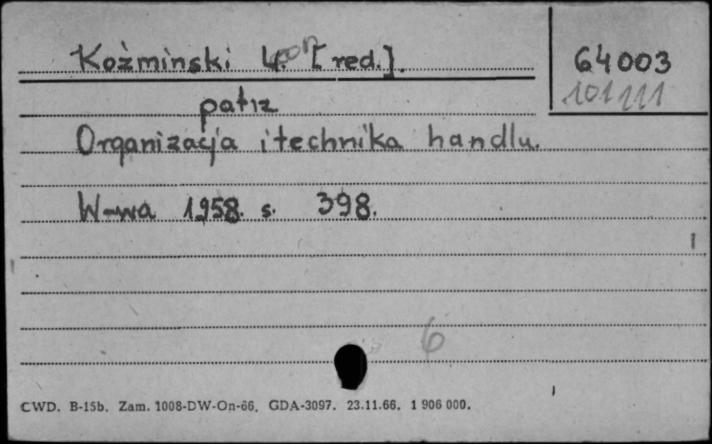 Koźminski Ł. [red.].
64003
101111
patrz
Organizacja i technika handlu.
W-wa 1958. s. 398.
6
CWD. B-15b. Zam. 1008-DW-On-66. GDA-3097. 23.11.66. 1 906 000.